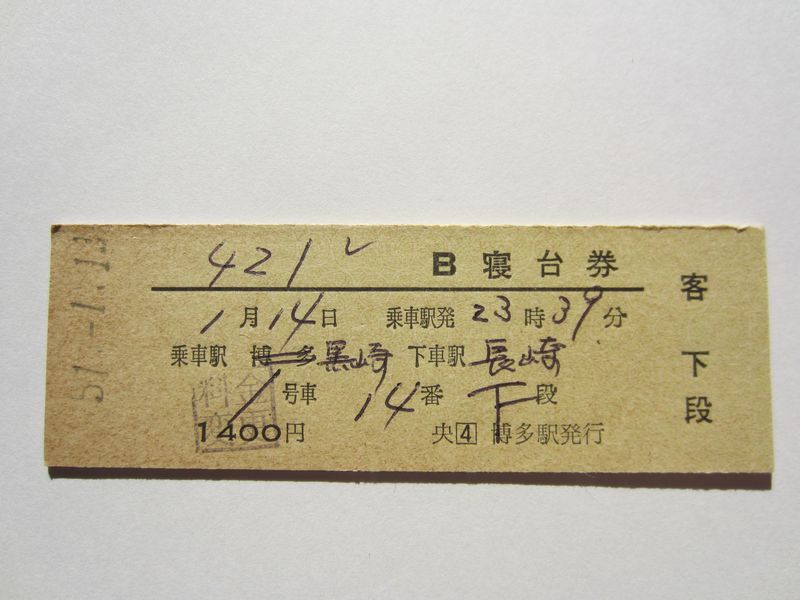 421レ B寝台券
1月14日 乗車駅発23時39分
乗車駅 博多 黒崎 下車駅 長崎
1号車 14番 下段
1400円 央4 博多駅発行
客
下段
料金変更
51.-1.14